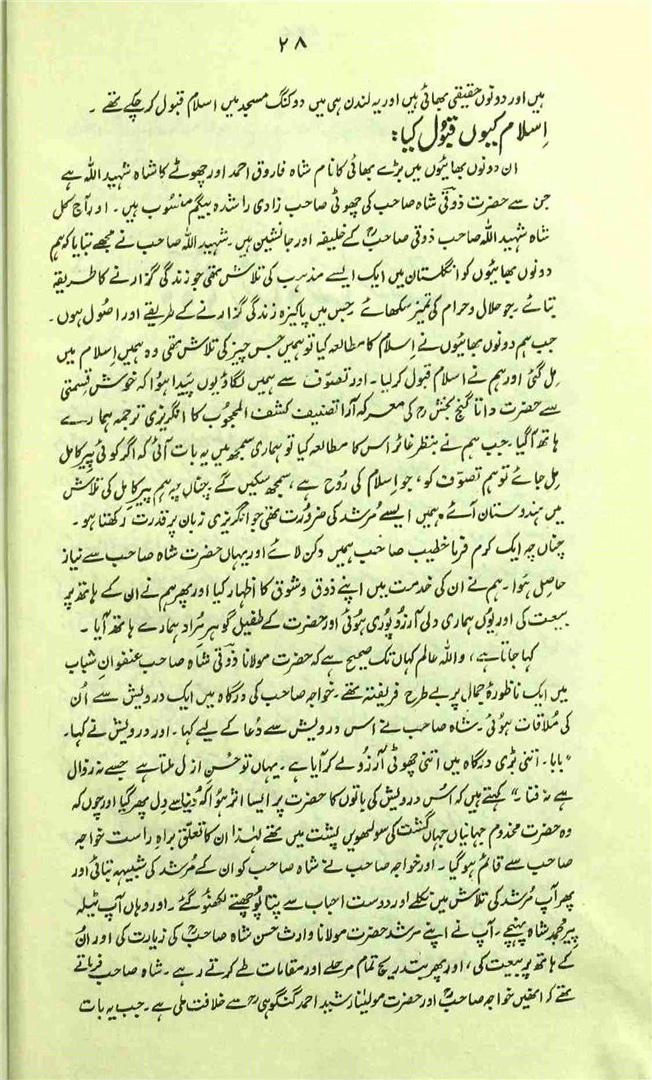 ۲۸
ہیں اور دونوں حقیقی بھائی ہیں اور یہ لندن ہی میں دوکنگ مسجد میں اسلام قبول کر چکے تھے ۔
اِسلام کیوں قبوُل کیا:
ان دونوں بھائیوں میں بڑے بھائی کا نام شاہ فاروق احمد اور چھوٹے کا شاہ شہید اللہ ہے
جن سے حضرت ذوقی شاہ صاحب کی چھوٹی صاحب زادی راشدہ بیگم منسوب ہیں ۔ اور آج کل
شاہ شہید اللہ صاحب ذوقی صاحبؒ کے خلیفہ اور جانشین ہیں ۔ شہید اللہ صاحب نے مجھے بتایا کہ ہم
دونوں بھائیوں کو انگلستان میں ایک ایسے مذہب کی تلاش تھی جو زندگی گزارنے کا طریقہ
بتائے ۔ جو حلال و حرام کی تمیز سکھائے ۔ جس میں پاکیزہ زندگی گزارنے کے طریقے اور اصُول ہوں ۔
جب ہم دونوں بھائیوں نے اِسلام کا مطالعہ کیا تو ہمیں جس چیز کی تلاش تھی وہ ہمیں اِسلام میں
مِل گئی اور ہم نے اسلام قبول کر لیا ۔ اور تصوّف سے ہمیں لگاؤ یوں پیَدا ہوُا کہ خوش قسمتی
سے حضرت داتا گنج بخش رح کی معرکہ آرا تصنیف کشف المحجوب کا انگریزی ترجمہ ہمارے
ہاتھ آ گیا ۔ جب ہم نے بنظرِ غائر اس کا مطالعہ کیا تو ہماری سمجھ میں یہ بات آئی کہ اگر کوئی پیرِ کامل
مِل جائے تو ہم تصوّف کو ، جو اِسلام کی رُوح ہے ، سمجھ سکیں گے ۔ چناں چہ ہم پیرِ کامل کی تلاش
میں ہندوستان آئے ۔ ہمیں ایسے مُرشد کی ضرورت تھی جو انگریزی زبان پر قدرت رکھتا ہو ۔
چناں چہ ایک کرم فرما خطیب صاحب ہمیں دکن لائے اور یہاں حضرت شاہ صاحب سے نیاز
حاصل ہوُا ۔ ہم نے ان کی خدمت میں اپنے ذوق و شوق کا اظہار کیا اور پھر ہم نے ان کے ہاتھ پر
بیعت کی اور یوُں ہماری دلی آرزو پوری ہوُئی اور حضرت کے طفیل گوہرِ مُراد ہمارے ہاتھ آیا ۔
کہا جاتا ہے ، واللہ عالم کہاں تک صحیح ہے کہ حضرت مولانا ذوقی شاہ صاحب عنفوانِ شباب
میں ایک ناظورۂ جمال پر بے طرح فریفتہ تھے ۔ خواجہ صاحب کی درگاہ میں ایک درویش سے اُن
کی مُلاقات ہوُئی ۔ شاہ صاحب نے اس درویش سے دُعا کے لیے کہا ۔ اور درویش نے کہا ۔
" بابا ۔ اتنی بڑی درگاہ میں اتنی چھوٹی آرزُو لے کر آیا ہے ۔ یہاں تو حسُنِ ازل ملتا ہے جسے نہ زوال
ہے نہ فنا ۔ " کہتے ہیں کہ اُس درویش کی باتوں کا حضرت پر ایسا اثر ہوُا کہ دُنیا سے دِل پھر گیا اور چوں کہ
وہ حضرت مخدوم جہانیاں جہاں گشت کی سولھویں پشت میں تھے لہٰذا ان کا تعلّق براہِ راست خواجہ
صاحب سے قائم ہو گیا ۔ اور خواجہ صاحب نے شاہ صاحب کو ان کے مُرشد کی شبیہہ بتائی اور
پھر آپ مُرشد کی تلاش میں نکلے اور دوست احباب سے پتا پوُچھتے لکھنؤ گئے ۔ اور وہاں آپ ٹیلہ
پیر محمد شاہ پہنچے ۔ آپ نے اپنے مرشد حضرت مولانا وارث حسن شاہ صاحبؒ کی زیارت کی اور اُن
کے ہاتھ پر بیعت کی ، اور پھر بتدریج تمام مرحلے اور مقامات طے کرتے رہے ۔ شاہ صاحب فرماتے
تھے کہ انھیں خواجہ صاحبؒ اور حضرت مولیٰنا رشید احمد گنگوہی رح سے خلافت ملی ہے ۔ جب یہ بات